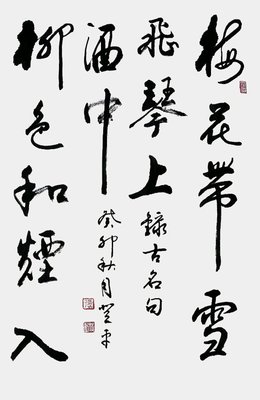 梅花帶雪
飛琴上
柳色和煙入
酒中
錄古名句
癸卯秋月